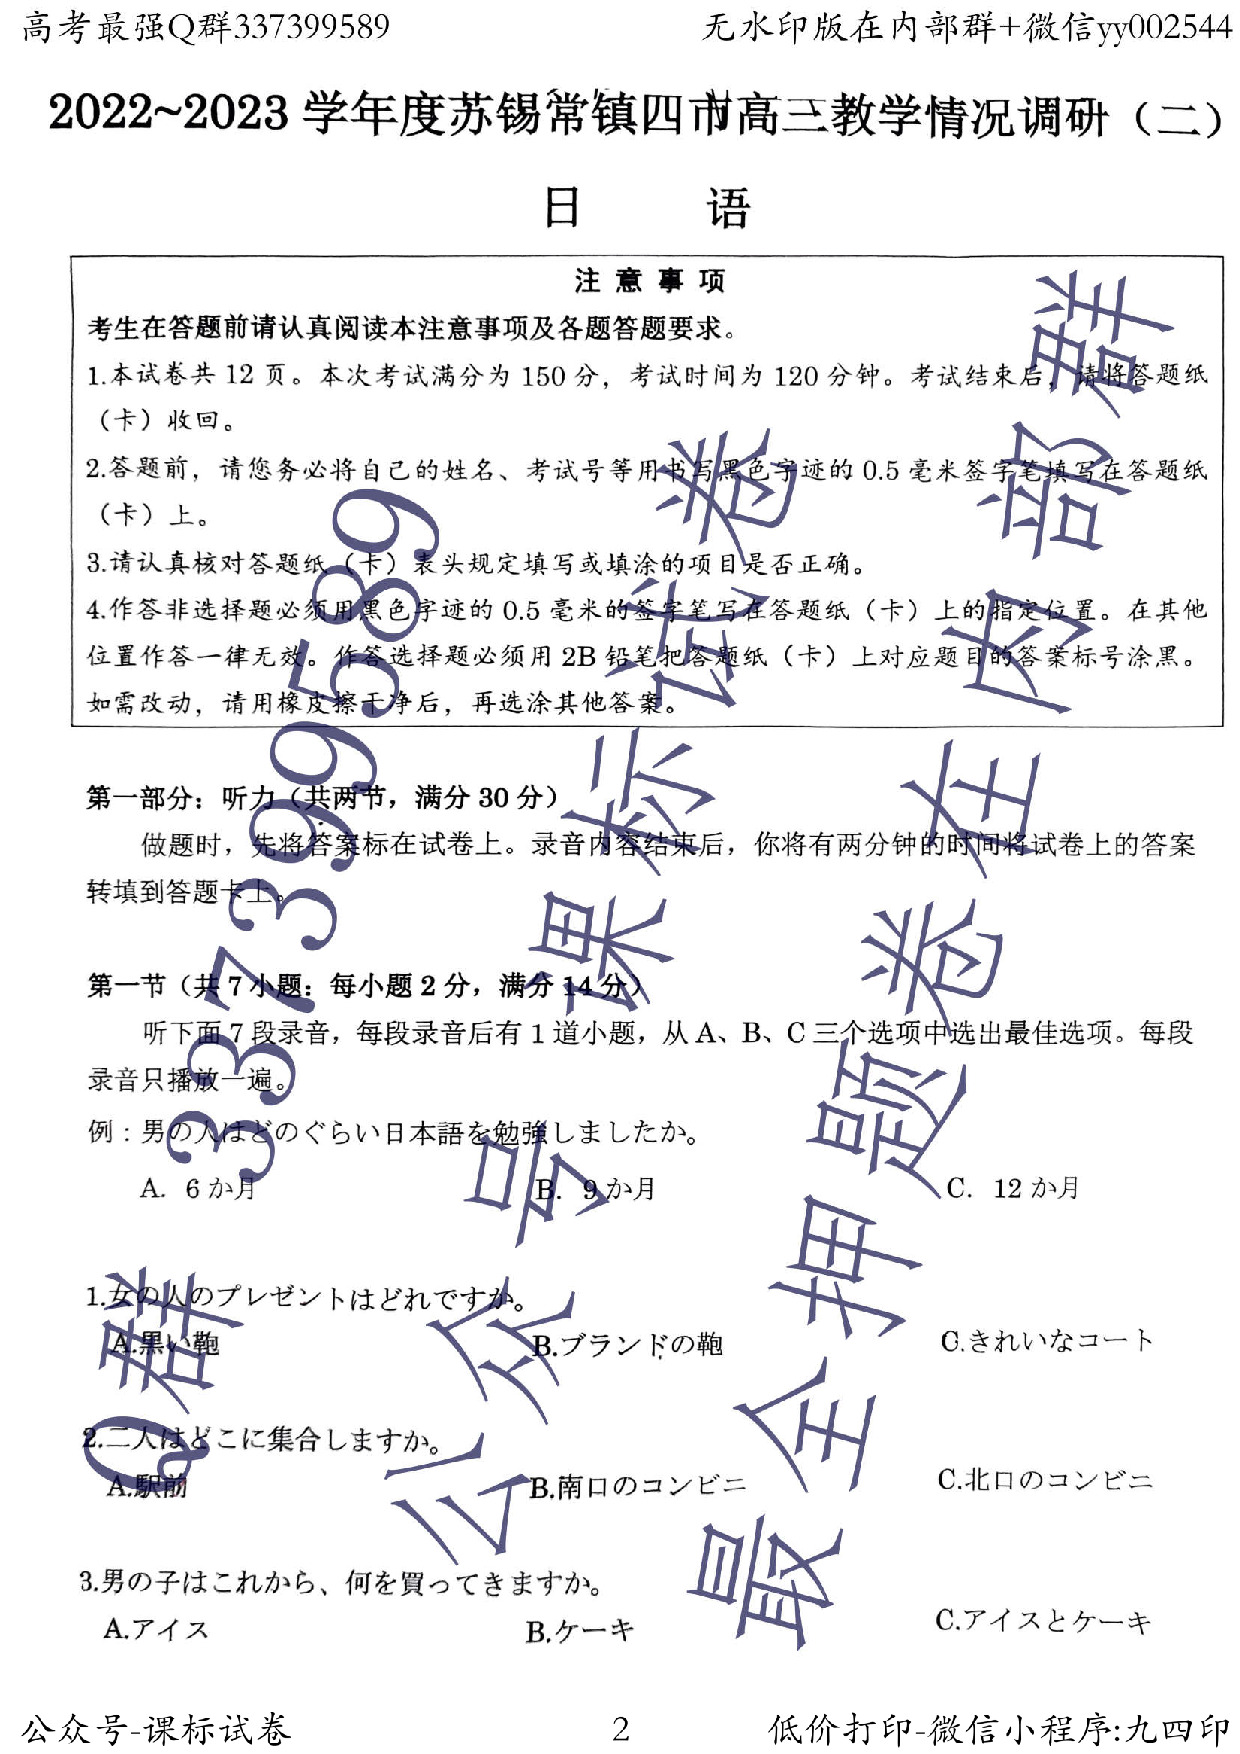 高考最强Q群337399589
无水印版在内部群+微信yy002544
2022~2023 学年度苏锡常镇四市高三教学情况调研（二）
日 语
注 意 事 项
考生在答题前请认真阅读本注意事项及各题答题要求。
1.本试卷共 12 页。本次考试满分为 150 分，考试时间为 120 分钟。考试结束后，请将答题纸
（卡）收回。
2.答题前，请您务必将自己的姓名、考试号等用书写黑色字迹的 0.5 毫米签字笔填写在答题纸
（卡）上。
3.请认真核对答题纸（卡）表头规定填写或填涂的项目是否正确。
4.作答非选择题必须用黑色字迹的 0.5 毫米的签字笔写在答题纸（卡）上的指定位置。在其他
位置作答一律无效。作答选择题必须用 2B 铅笔把答题纸（卡）上对应题目的答案标号涂黑。
如需改动，请用橡皮擦干净后，再选涂其他答案。
第一部分：听力（共两节，满分 30 分）
做题时，先将答案标在试卷上。录音内容结束后，你将有两分钟的时间将试卷上的答案
转填到答题卡上。
第一节（共 7 小题：每小题 2 分，满分 14 分）
听下面 7 段录音，每段录音后有 1 道小题，从 A、B、C 三个选项中选出最佳选项。每段
录音只播放一遍。
例：男の人はどのぐらい日本語を勉強しましたか。
A. 6 か月 B. 9 か月 C. 12 か月
1.女の人のプレゼントはどれですか。
A.黒い鞄 B.ブランドの鞄 C.きれいなコート
2.二人はどこに集合しますか。
A.駅前 B.南口のコンビニ C.北口のコンビニ
3.男の子はこれから、何を買ってきますか。
A.アイス B.ケーキ C.アイスとケーキ
Q群337399589
公众号 课标试卷
最全押题卷在内部群
公众号-课标试卷
2
低价打印-微信小程序:九四印